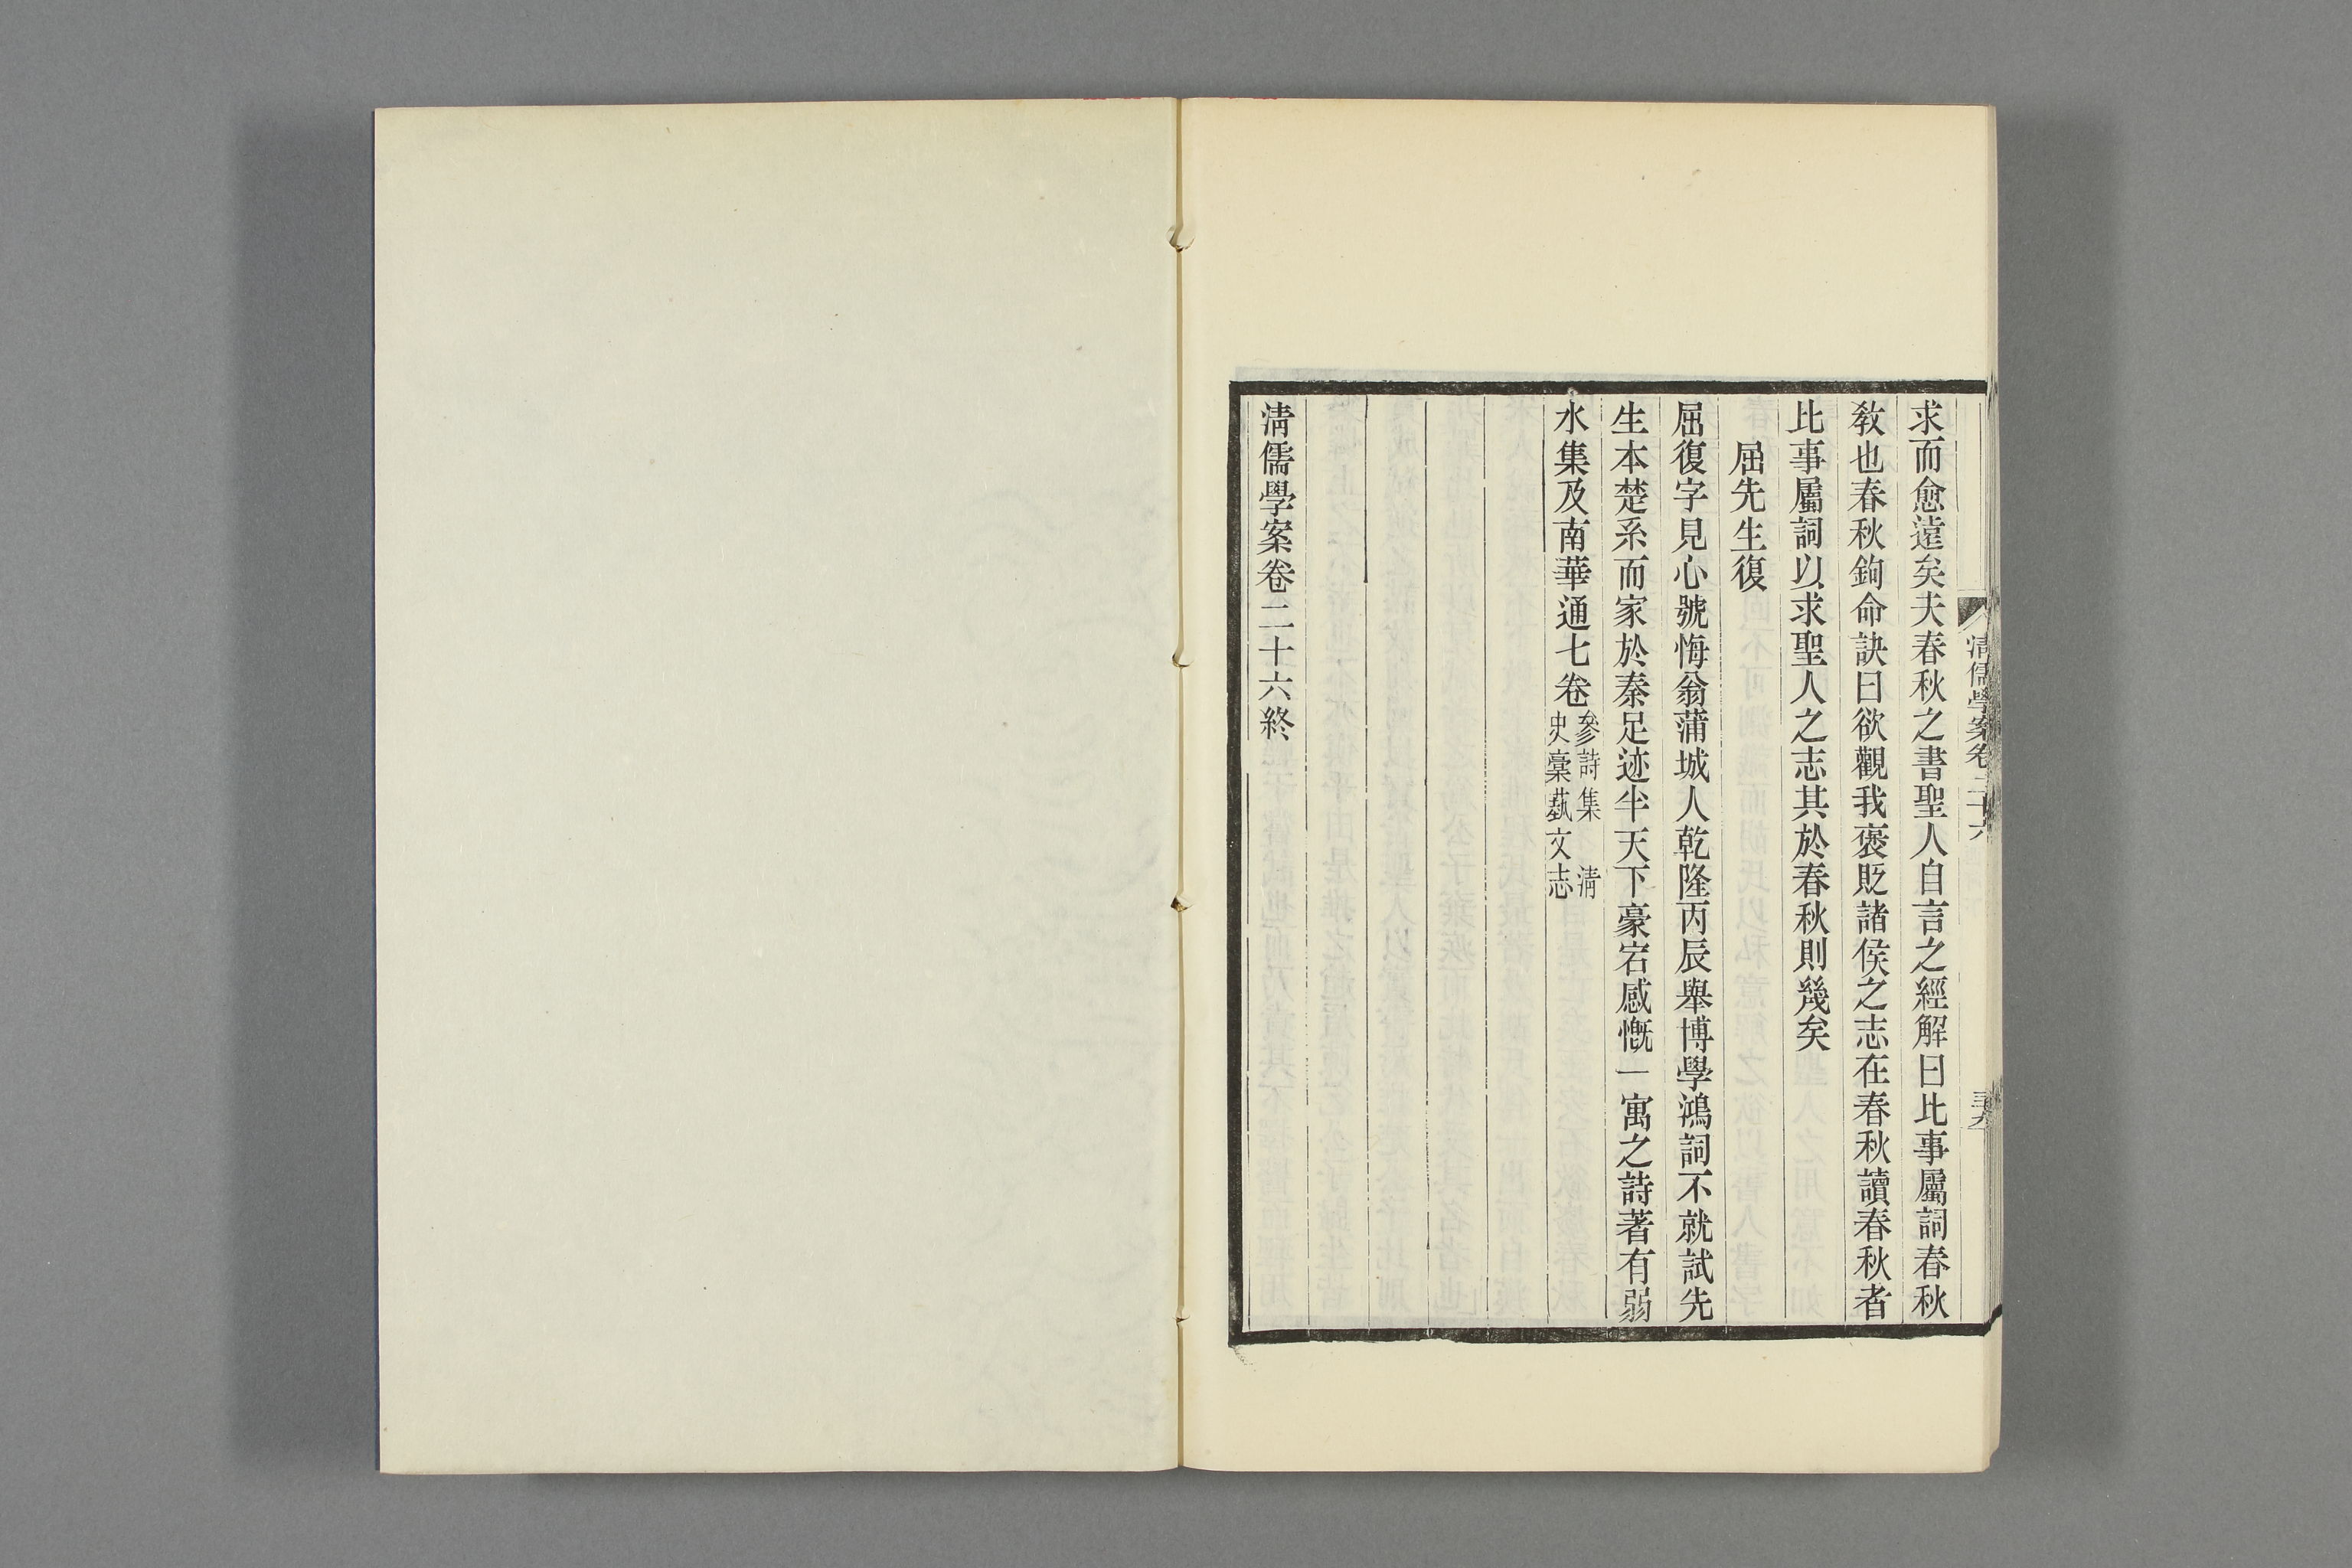 求而愈遠矣夫春秋之書聖人自言之經解曰比事屬詞春秋
敎也春秋鉤命訣曰欲觀我褒貶諸侯之志在春秋讀春秋者
比事屬詞以求聖人之志其於春秋則幾矣
屈先生復
屈復字見心號悔翁蒲城人乾隆丙辰舉博學鴻詞不就試先
生本楚系而家於秦足迹半天下豪宕感慨一寓之詩著有弱
水集及南華通七卷參詩集 清
史稾蓺文志
清儒學案卷二十六終
清儒學案卷二十六